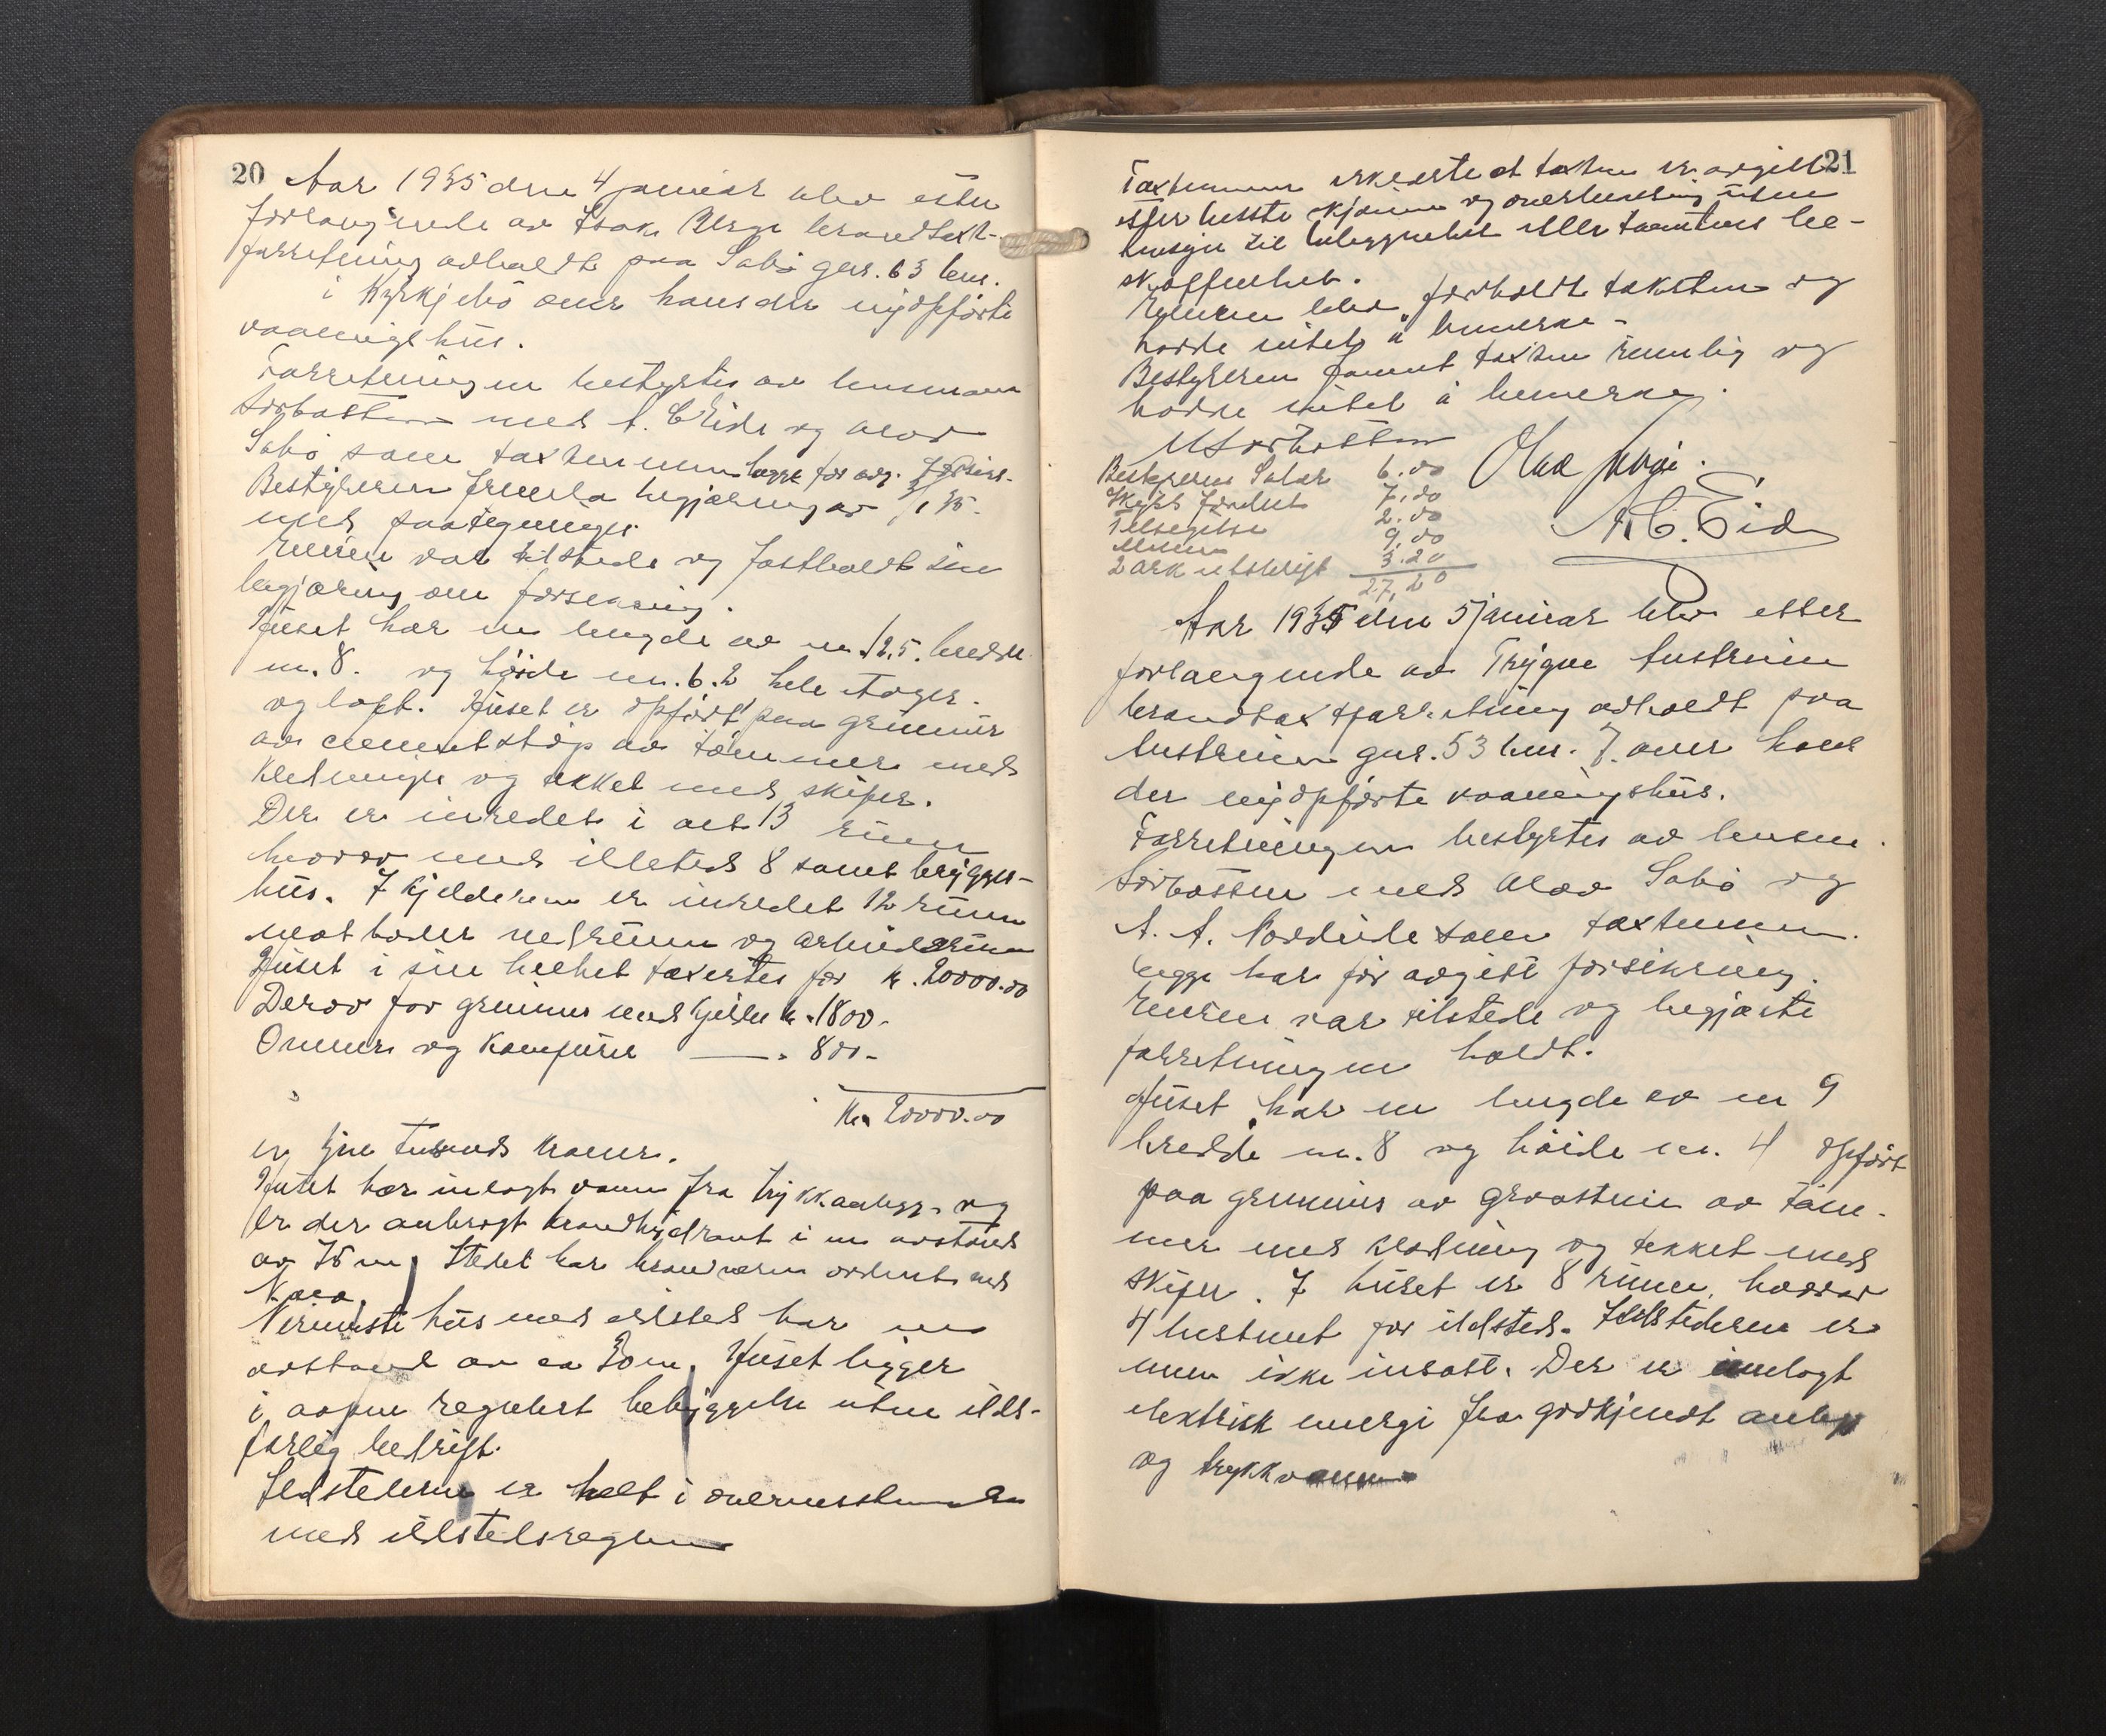 20
Aar 1935 den 4 januar blev etter
forlangende av Isak Berge brandtakst-
forretning avholdt paa Sabø gnr. 63 bnr.
i Kyrkjebø over hans der nyopførte
vaaningshus.
Forretningen bestyrtes av lensmann
Sørbotten med A. C. Eide og Olav
Sabø som taxtmenn begge før avg. forsikr.
Bestyreren fremla begjæring av 3/1 35.
med paategninger.
Eieren var tilstede og fastholdt sin
begjæring om forsikring.
Huset har en lengde av m. 12.5. bredde
m. 8. og høide m. 6. 2 hele etager.
og loft. Huset er opført paa grunmur
av cementstøp av tømmer med
kledninger og tekket med skifer.
Der er inredet i alt 13 rum
hvorav med illsted 8 samt brygger-
hus. I kjelderen er inredet 12 rum
mat boder vedrum og arbeidsrum
Huset i sin helhet taxertes for kr. 20000.00
Derav for grunmur med kjeller kr. 1800.-
Ovner og komfurer — . 800-
Kr. 20000.00
er tjue tusend kroner.
Huset har inlagt vann fra trykkanlegg og
er der anbragt brandhydrant i en avstand
av 75 m. Stedet har brandvern ordent med
Nermeste hus med illsted har en
avstand av ca 30 m. Huset ligger
i aapen regulert bebyggelse uten ilds-
farlig bedrift.
Ildstederne er helt i overensstemmelse
med ildstedsreglene
21
Taxtmennene erklerte at taxten er avgitt
efter beste skjønn og overbevisning uten
hensyn til beleggenhet eller tomtens be-
skaffenhet.
Eieren blev forholdt taksten og
hadde intet å bemerke -
Bestyreren fannt taxten rimelig og
hadde intet å bemerke.
M Sørbotten
Olav Sabø.
A. C. Eide
Bestyrerens Salær 6.00
Skyds fordret 7.00
Tilsigelse 2.00
9.00
2 ark utskrift 3.20
27,20
Aar 1935 den 5 januar blev etter
forlangende av Trygve Austreim
brandtaxtforretning avholdt paa
Austreim gnr. 53 bnr. 7. over hans
der nyopførte vaaningshus.
Forretningen bestyrtes av lensm.
Sørbotten med Olav Sabø og
A. A. Nordeide som taxtmenn.
begge har før avgitt forsikring.
Eieren var tilstede og begjærte
forretningen holdt.
Huset har en lengde av m 9
bredde m. 8 og høide m. 4 opført
paa grunmur av graastein av tøm-
mer med kledning og tekket med
skifer. I huset er 8 rum, hvorav
4 bestemt for ildsted. Ildstederne er
enn ikke insatt. Der er innlagt
elektrisk energi fra godkjendt anleg
og trykkvann